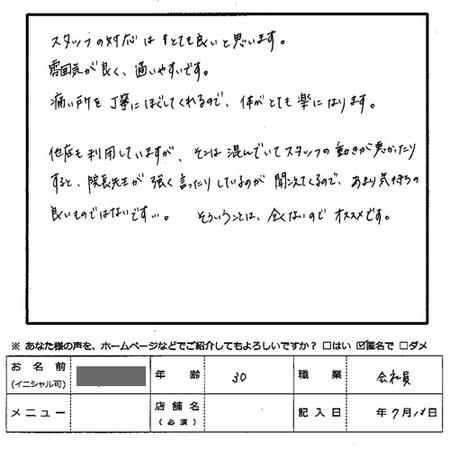 スタッフの対応はとても良いと思います。
雰囲気が良く、通いやすいです。
痛い所を丁寧にほぐしてくれるので、体がとても楽になります。
他店も利用していますが、そこは混んでいてスタッフの動きが悪かったり
すると、院長先生が強く言ったりしているのが聞こえてくるので、あまり気持ちの
良いものではないです…。 そういうことは、全くないのでオススメです。
※ あなた様の声を、ホームページなどでご紹介してもよろしいですか？ □はい ☑匿名で □ダメ
お名前 (イニシャル可) 年齢 30 職業 会社員
メニュー 店舗名 (必須) 記入日 年7月18日